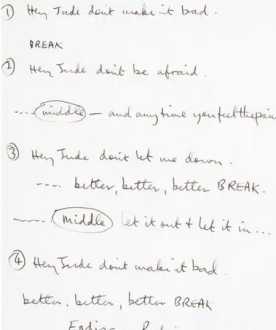 ① Hey Jude don't make it bad.
BREAK
② Hey Jude don't be afraid.
.... middle — and any time you feel the pain
③ Hey Jude don't let me down.
---- better, better, better BREAK.
middle let it out & let it in...
④ Hey Jude don't make it bad.
better, better, better BREAK
Ending